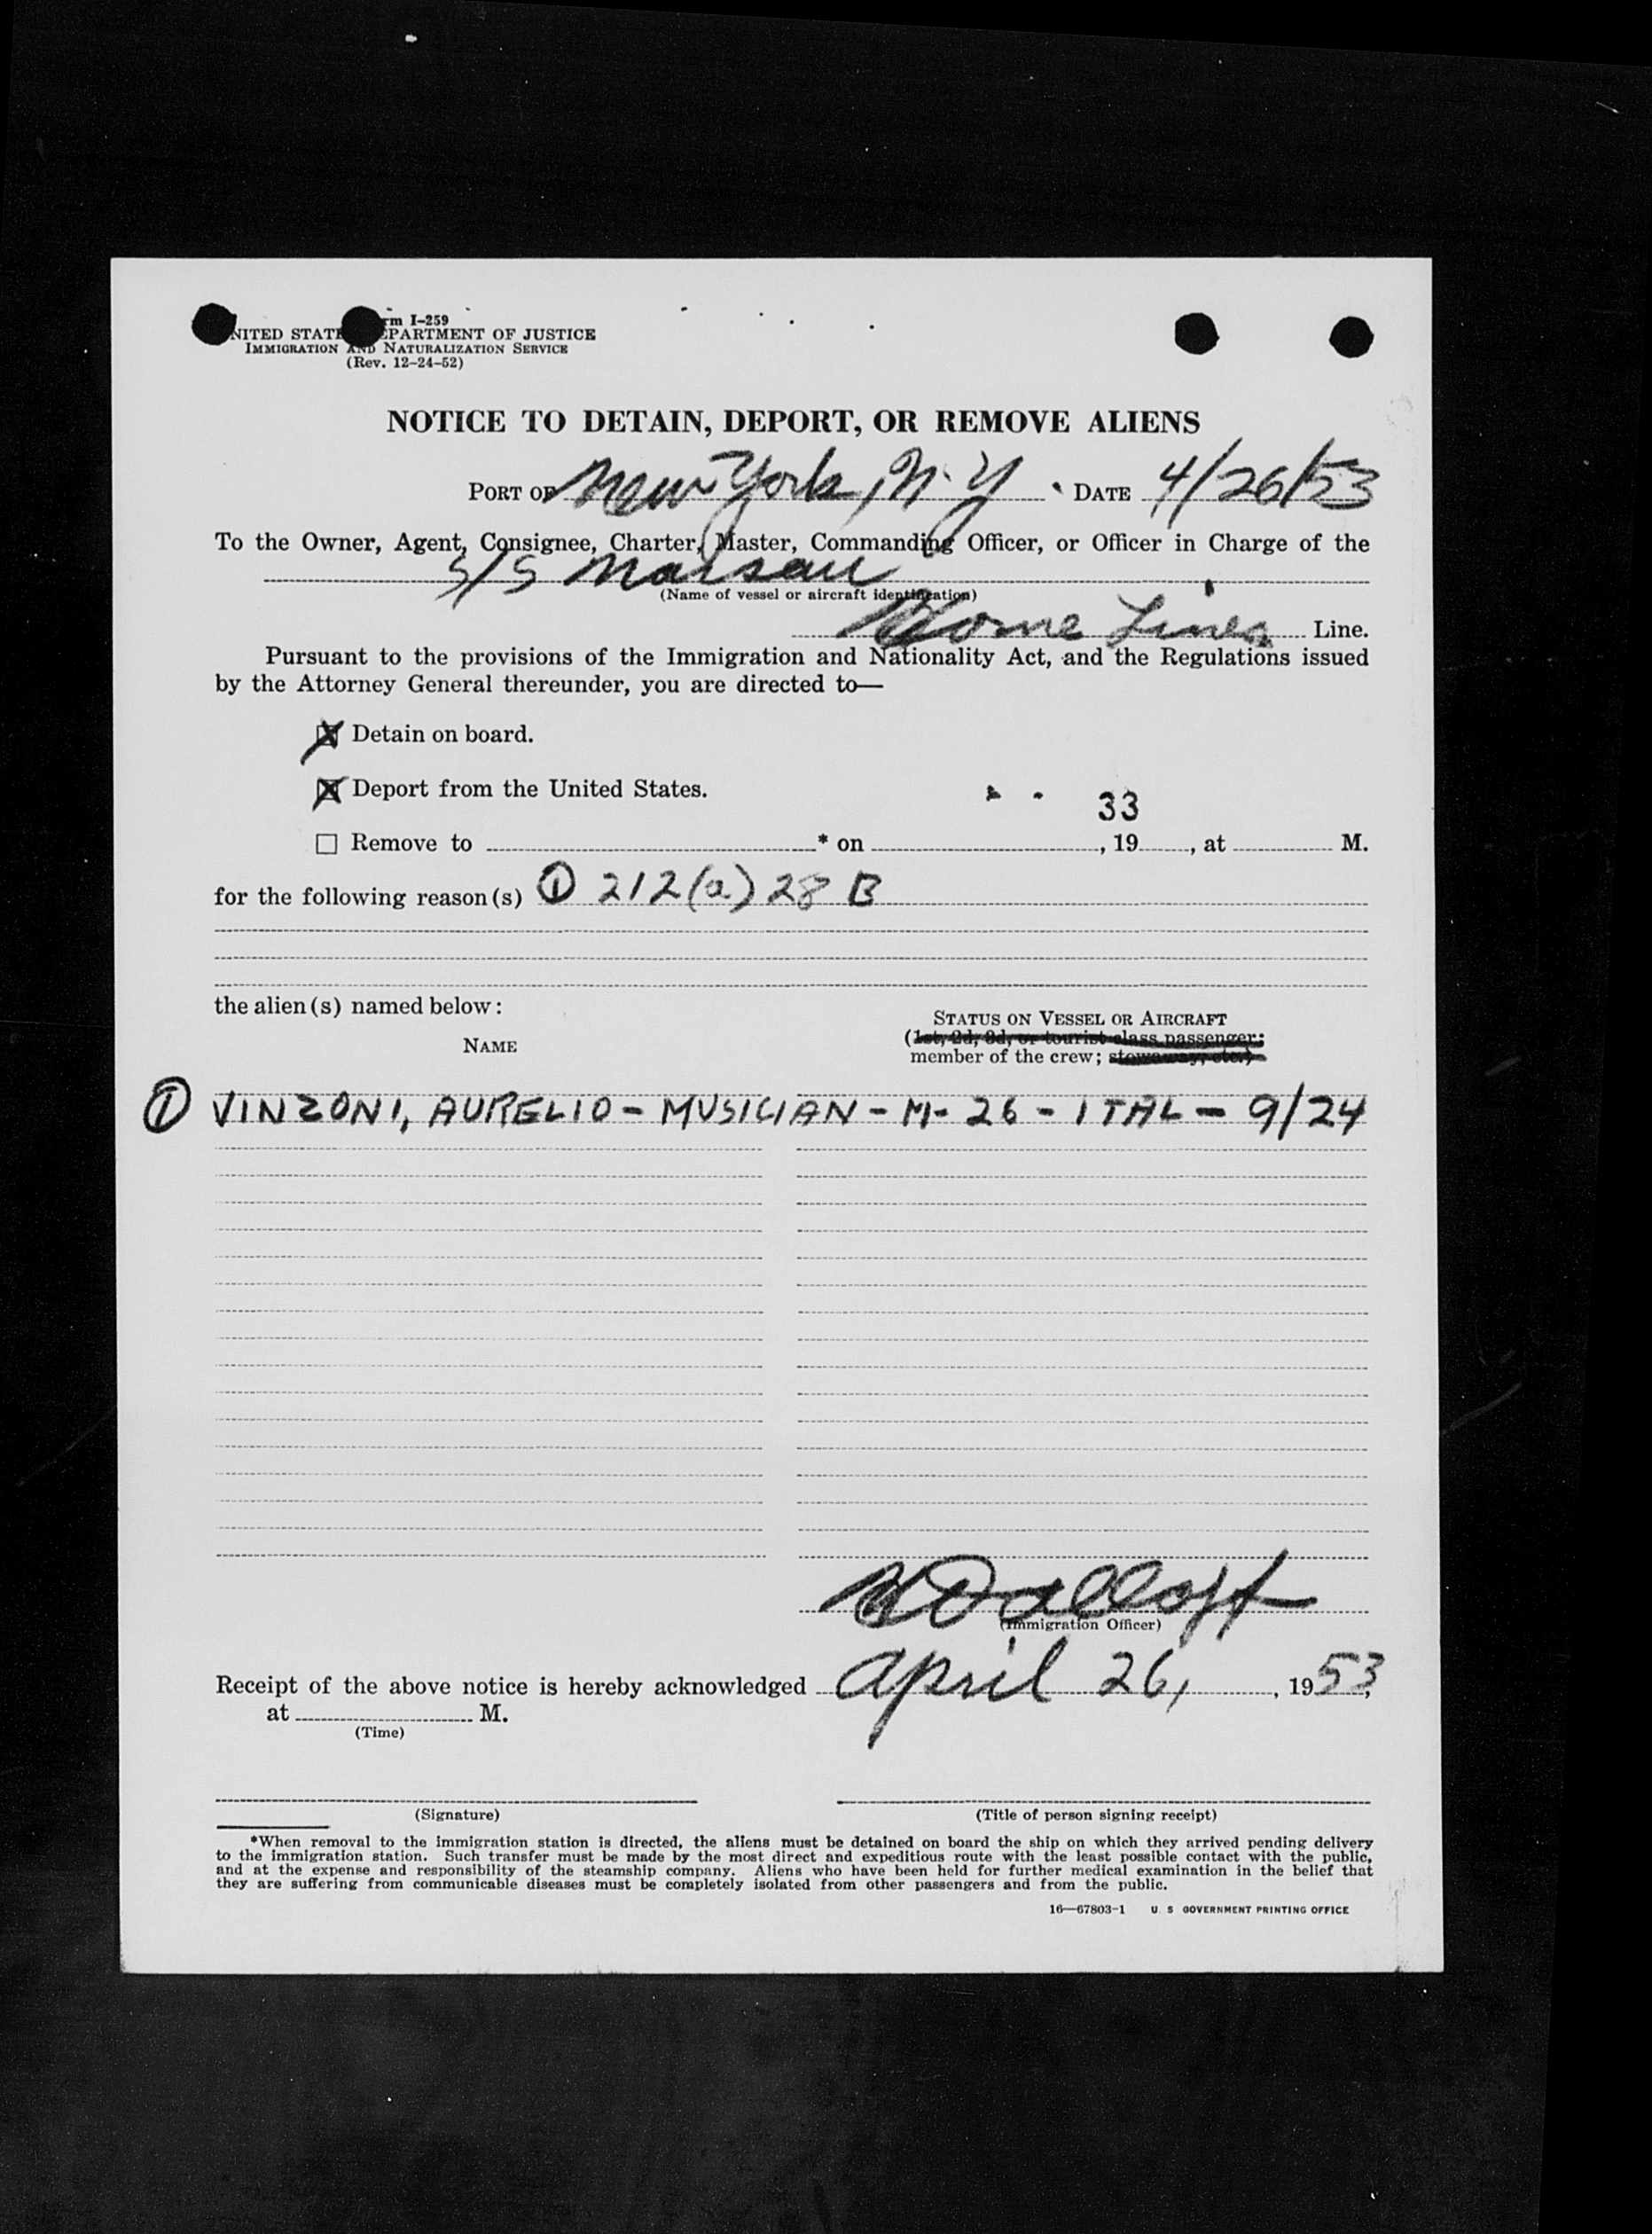 rm I-259
NITED STAT EPARTMENT OF JUSTICE
IMMIGRATION AND NATURALIZATION SERVICE
(Rev. 12-24-52)
NOTICE TO DETAIN, DEPORT, OR REMOVE ALIENS
PORT OF New York, N.Y DATE 4/26/53
To the Owner, Agent, Consignee, Charter, Master, Commanding Officer, or Officer in Charge of the
S/S
(Name of vessel or aircraft identification)
Home Lines Line.
Pursuant to the provisions of the Immigration and Nationality Act, and the Regulations issued
by the Attorney General thereunder, you are directed to—
☒ Detain on board.
☒ Deport from the United States.
33
☐ Remove to * on , 19 , at M.
for the following reason(s) ① 212(a) 28 B
the alien(s) named below:
STATUS ON VESSEL OR AIRCRAFT
NAME
(1st, 2d, 3d, or tourist class passenger;
member of the crew; stowaway, etc.)
① VINZONI, AURELIO - MUSICIAN - M- 26 - ITAL - 9/24
(Immigration Officer)
Receipt of the above notice is hereby acknowledged April 26, , 1953,
at M.
(Time)
(Signature) (Title of person signing receipt)
*When removal to the immigration station is directed, the aliens must be detained on board the ship on which they arrived pending delivery
to the immigration station. Such transfer must be made by the most direct and expeditious route with the least possible contact with the public,
and at the expense and responsibility of the steamship company. Aliens who have been held for further medical examination in the belief that
they are suffering from communicable diseases must be completely isolated from other passengers and from the public.
16—67803-1 U. S GOVERNMENT PRINTING OFFICE